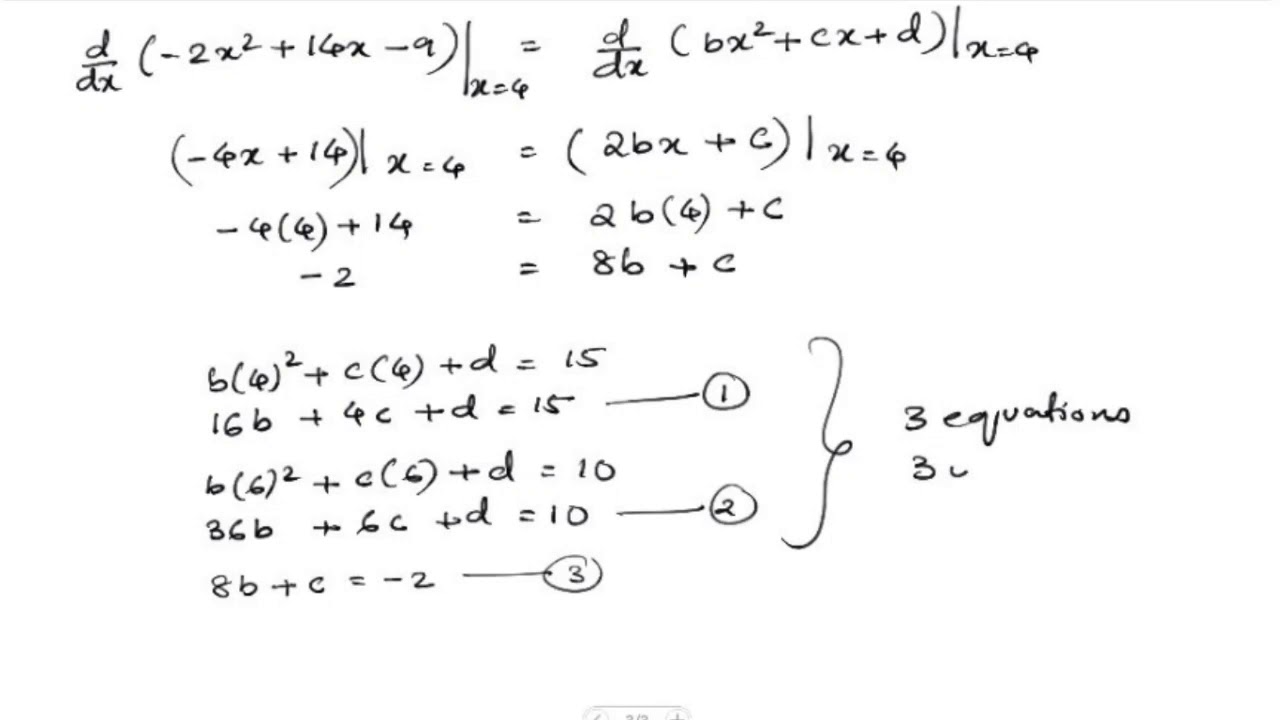 d/dx (-2x² + 14x - 9)|x=4 = d/dx (bx² + cx + d)|x=4
(-4x + 14)|x=4 = (2bx + c)|x=4
-4(4) + 14 = 2b(4) + c
-2 = 8b + c
b(4)² + c(4) + d = 15
16b + 4c + d = 15 —— ①
b(6)² + c(6) + d = 10
36b + 6c + d = 10 —— ②
8b + c = -2 —— ③
3 equations
3 u